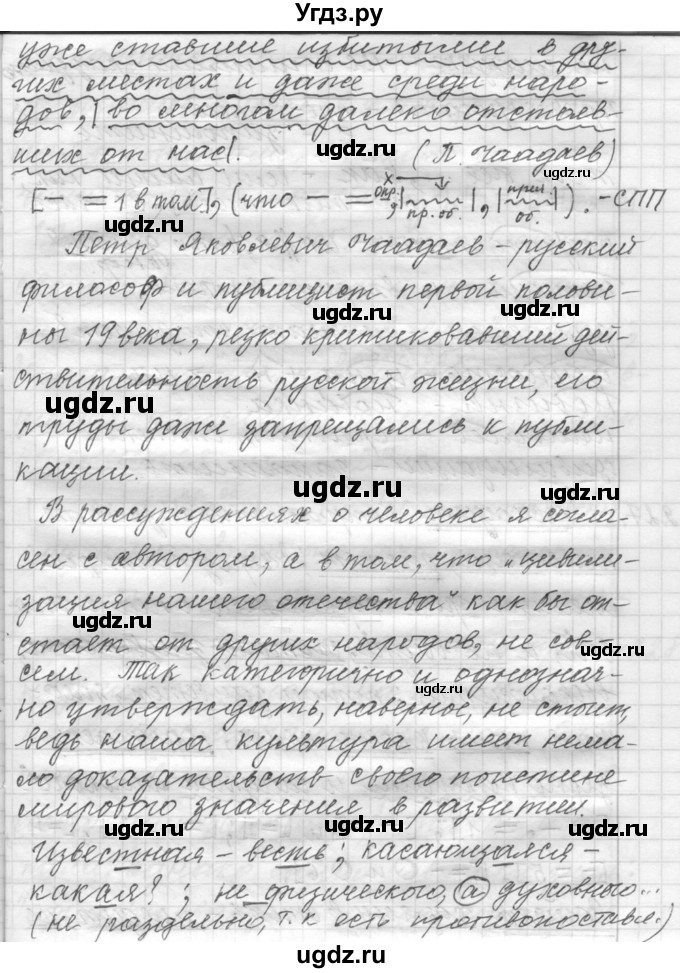 Угдз.ру
уже ставшие избитыми в дру-
гих местах и даже среди наро-
дов, во многом далеко отстав-
ших от нас.
(П. Чаадаев)
[— = 1 в том], (что — = опр., | пр. об. |, | прич. об. |). - СПП
Петр Яковлевич Чаадаев - русский
философ и публицист первой полови-
ны 19 века, резко критиковавший дей-
ствительность русской жизни, его
ugdz.ru
ugdz.ru
труды даже запрещались к публи-
кации.
ugdz.ru
ugdz.ru
В рассуждениях о человеке я согла-
сен с автором, а в том, что „цивили-
зация нашего отечества" как бы от-
ugdz.ru
стает от других народов, не сов-
ugdz.ru
сем. Так категорично и однознач-
ugdz.ru
но утверждать, наверное, не стоит,
ведь наша культура имеет нема-
ло доказательств своего поистине
мирового значения в развитии.
ugdz.ru
ugdz.ru
ugdz.ru
Известная - весть; касающаяся -
какая?; не физического, а духовного...
(не раздельно, т.к есть противопоставл.)
ugdz.ru